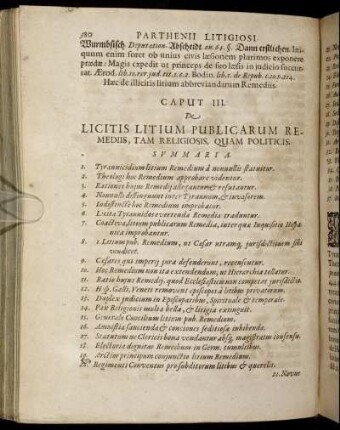 180 PARTHENII LITIGIOSI
Wurmbsisch. Deputation-Abscheidt an. 64. §. Dann erstlichen. Ini-
quum enim foret ob unius civis læsionem plurimos exponere
prædæ: Magis expedit ut princeps de suo læso in judicio succur-
rat. Ærod. lib. 10. rer. jud. tit. 1. c. 2. Bodin. lib. 1. de Republ.
Hæc de illicitis litium abbreviandarum Remediis.
CAPUT III.
De
LICITIS LITIUM PUBLICARUM RE-
MEDIIS, TAM RELIGIOSIS, QUAM POLITICIS.
SUMMARIA.
1. Tyrannicidium litium Remedium à nonnullis statuitur.
2. Theologi hoc Remedium approbare videntur.
3. Rationes hujus Remedij allegantur & refutantur.
4. Nonnulli distinguunt inter Tyrannum, & invasorem.
5. Indistinctè hoc Remedium improbatur.
6. Licita Tyrannidis evertenda Remedia traduntur.
7. Coacteva litium publicarum Remedia, inter quæ Inquisitio Hispa-
nica improbantur.
8. 1. Litium pub. Remedium, ut Cæsar utramq; jurisdictionem sibi
vendicet.
9. Cæsares qui imperij jura defenderunt, recensentur.
10. Hoc Remedium non ita extendendum, ut Hierarchia tollatur.
11. Ratio hujus Remedij, quod Ecclesiasticis non competat jurisdictio.
12. Hisp. Galli, Veneti removent episcopos à litibus privatorum.
13. Duplex judicium in Episcopatibus, Spirituale & temporale.
14. Pax Religionis multa bella, & litigia extinguit.
15. Generale Concilium litium pub. Remedium.
16. Amnestia sancienda & conciones seditiosæ inhibendæ.
17. Statutum ne Clerici bona vendant absq; magistratus consensu.
18. Electoria dignitas Remedium in Germ. tumultibus.
19. Arctior principum conjunctio litium Remedium.
20. Regimenti Conventus pro subditorum litibus & querelis.
21. Novem